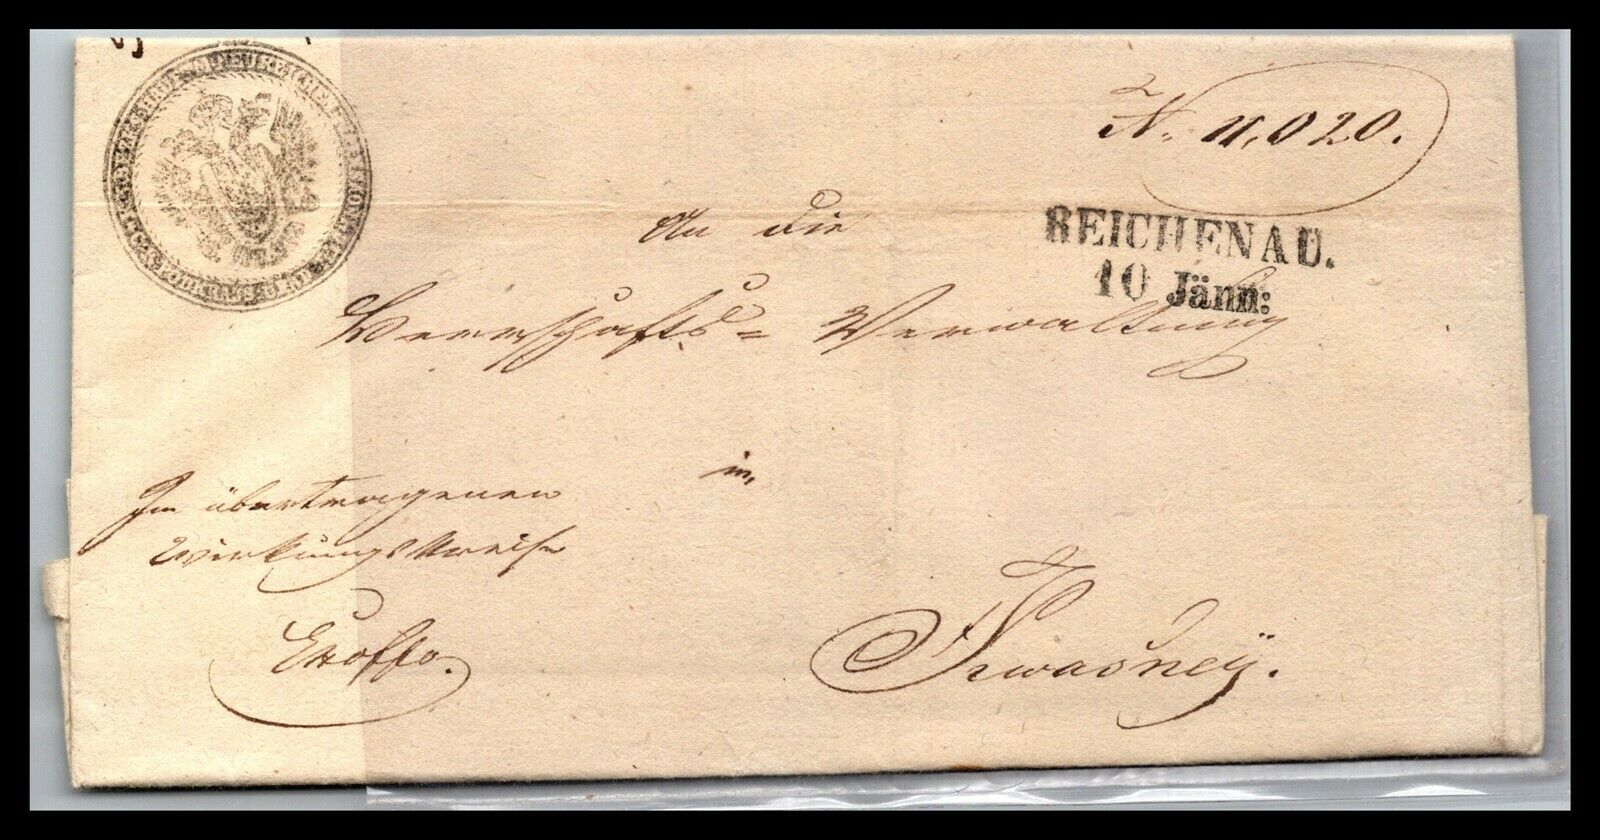 N. 11,020.
REICHENAU.
10 Jänn:
An die
Herrschafts = Verwaltung
in,
Kwasney.
Im übertragenen
Wirkungskreise
Exoffo.